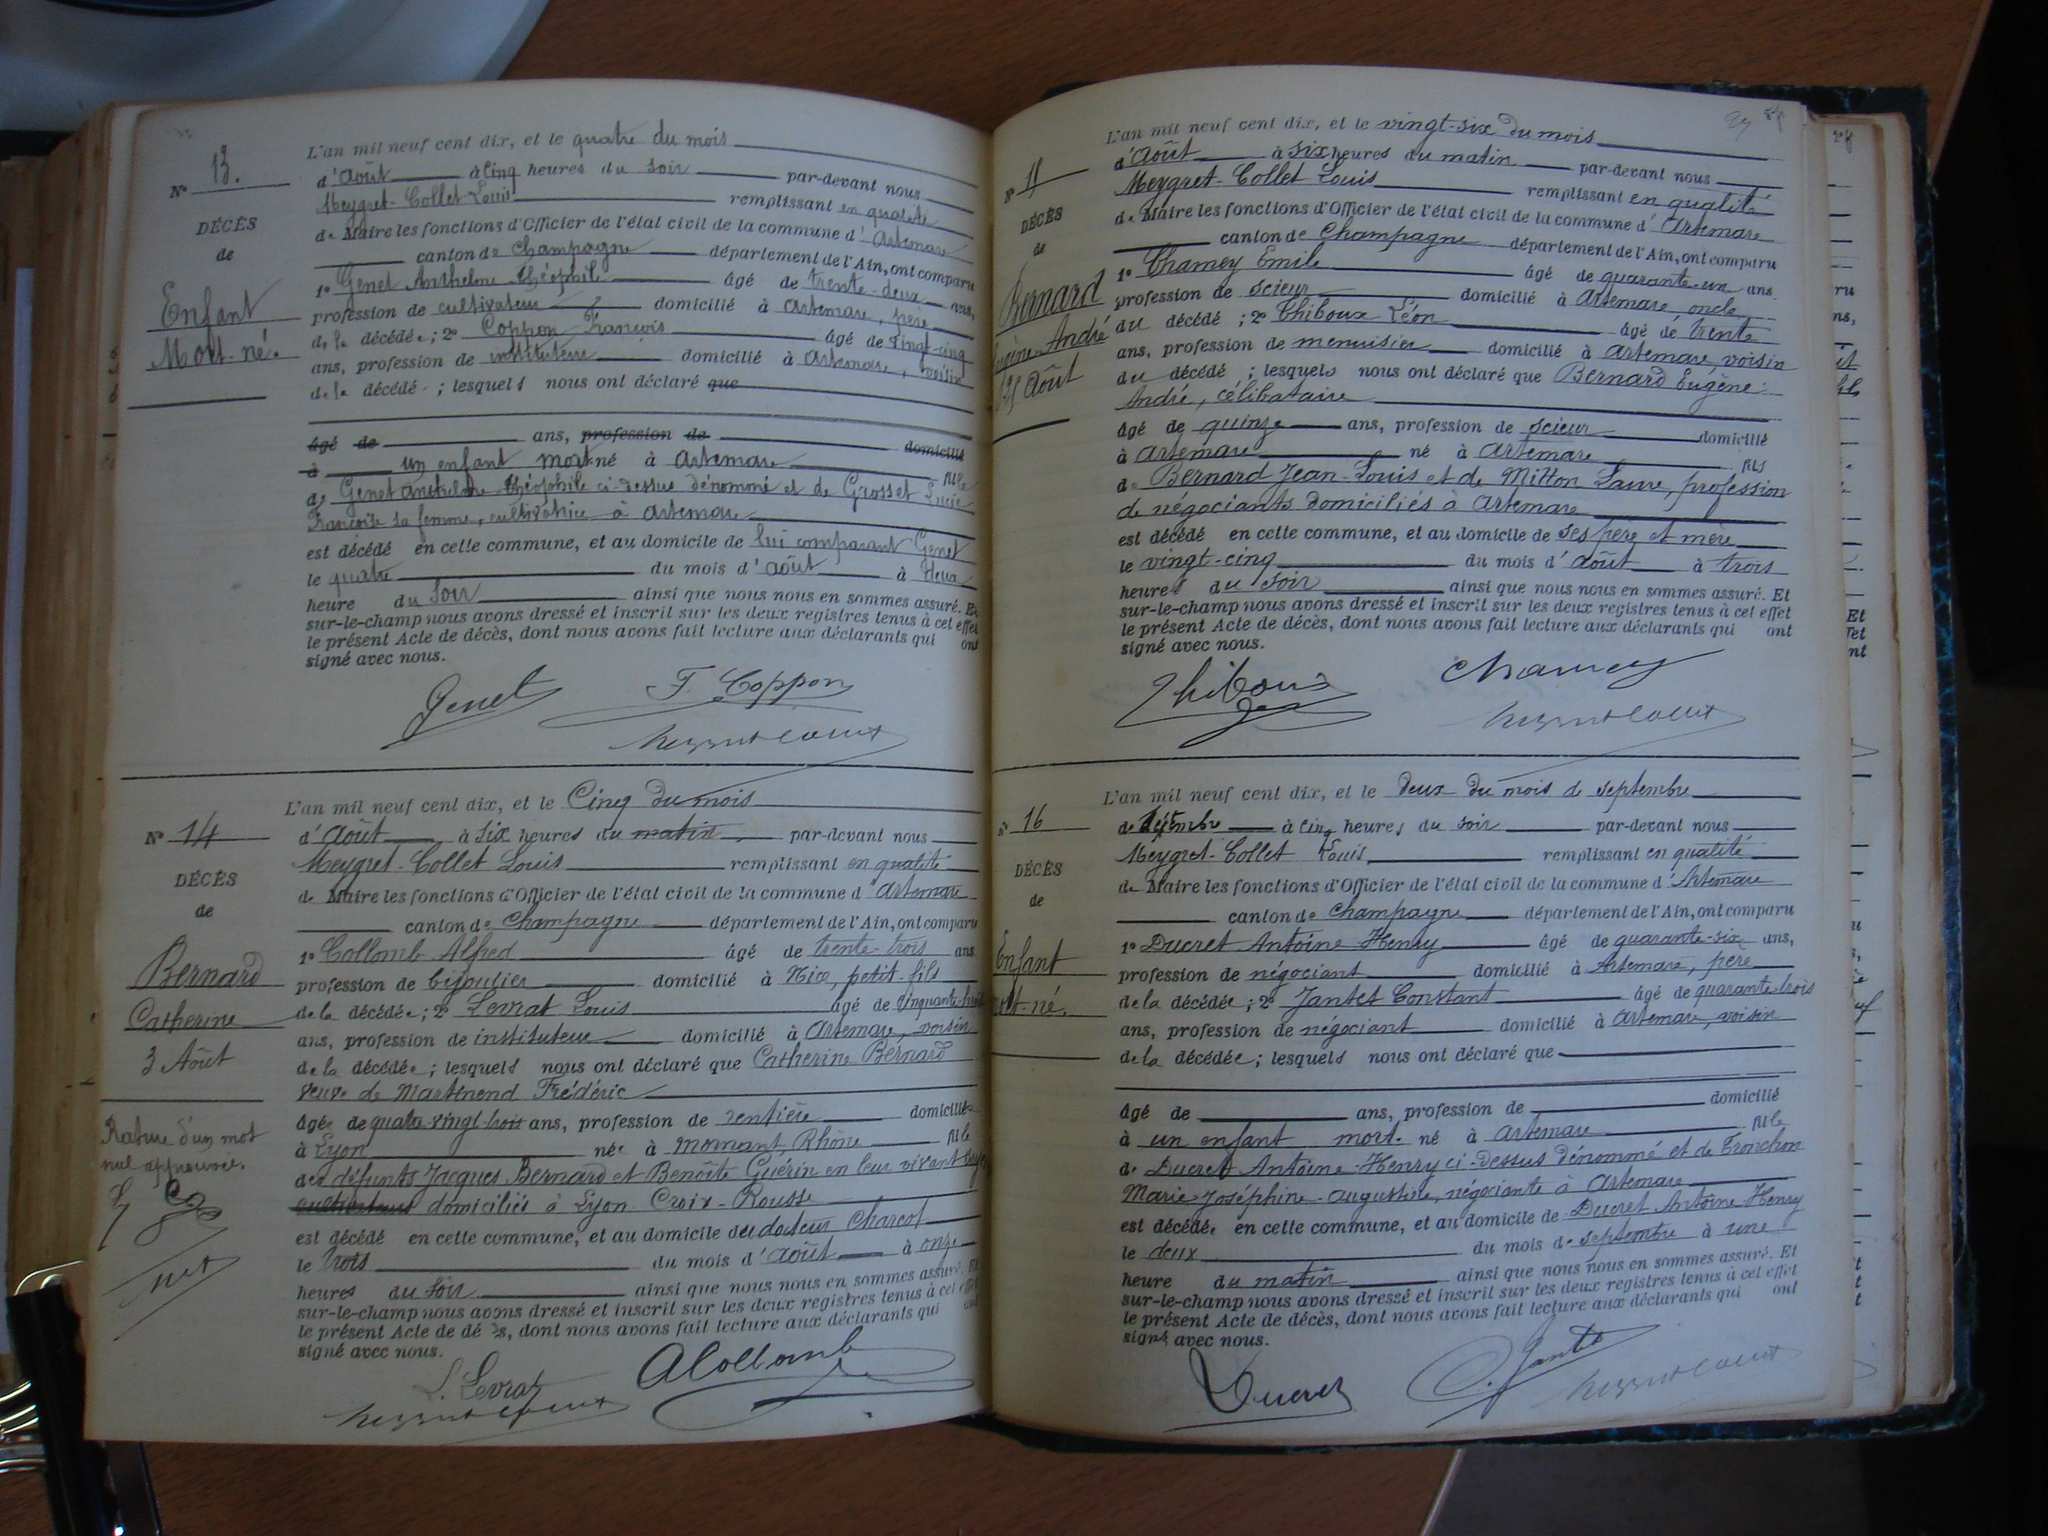 L'an mil neuf cent dix, et le quatre du mois
N° 13.
d'Août à cinq heures du soir par-devant nous
Meygret-Collet Louis remplissant en qualité
DÉCÈS
de Maire les fonctions d'Officier de l'état civil de la commune d'Artemare
de
canton de Champagne département de l'Ain, ont comparu
1° Genet Anthelme Théophile âgé de trente-deux ans,
Enfant
profession de cultivateur domicilié à Artemare, père
Mort-né.
de le décédé; 2° Coppon François âgé de vingt-cinq
ans, profession de instituteur domicilié à Artemare, voisin
de le décédé; lesquels nous ont déclaré que
âgé de ans, profession de domicilié
à un enfant mort né à Artemare fils
de Genet Anthelme Théophile ci-dessus dénommé et de Grosset Lucie
Françoise sa femme, cultivatrice à Artemare
est décédé en cette commune, et au domicile de lui comparant Genet
le quatre du mois d'août à deux
heure du soir ainsi que nous nous en sommes assuré. Et
sur-le-champ nous avons dressé et inscrit sur les deux registres tenus à cet effet
le présent Acte de décès, dont nous avons fait lecture aux déclarants qui ont
signé avec nous.
Genet F. Coppon
Meygret Collet
L'an mil neuf cent dix, et le Cinq du mois
N° 14
d'Août à six heures du matin par-devant nous
Meygret-Collet Louis remplissant en qualité
DÉCÈS
de Maire les fonctions d'Officier de l'état civil de la commune d'Artemare
de
canton de Champagne département de l'Ain, ont comparu
1° Collomb Alfred âgé de trente-trois ans
Bernard
profession de bijoutier domicilié à Nice, petit-fils
Catherine
de la décédée; 2° Levrat Louis âgé de cinquante-huit
ans, profession de instituteur domicilié à Artemare, voisin
3 Août
de la décédée; lesquels nous ont déclaré que Catherine Bernard
veuve de Martenend Frédéric
âgée de quatre vingt trois ans, profession de rentière domiciliée
Rature d'un mot
nul approuvée.
à Lyon née à Mornant, Rhône fille
des défunts Jacques Bernard et Benoîte Guérin en leur vivant
domiciliés à Lyon Croix-Rousse
est décédé en cette commune, et au domicile du docteur Charcot
le trois du mois d'août à onze
heures du soir ainsi que nous nous en sommes assuré. Et
sur-le-champ nous avons dressé et inscrit sur les deux registres tenus à cet effet
le présent Acte de décès, dont nous avons fait lecture aux déclarants qui ont
signé avec nous.
L. Levrat A Collomb
Meygret Collet
L'an mil neuf cent dix, et le vingt-six du mois
d'Août à six heures du matin par-devant nous
Meygret-Collet Louis remplissant en qualité
DÉCÈS
de Maire les fonctions d'Officier de l'état civil de la commune d'Artemare
de
canton de Champagne département de l'Ain, ont comparu
1° Chamey Emile âgé de quarante-un ans
Bernard
profession de scieur domicilié à Artemare, oncle
Eugène-André
du décédé; 2° Thiboux Léon âgé de trente
25 Août
ans, profession de menuisier domicilié à Artemare, voisin
du décédé; lesquels nous ont déclaré que Bernard Eugène
André, célibataire
âgé de quinze ans, profession de scieur domicilié
à Artemare né à Artemare fils
de Bernard Jean-Louis et de Mitton Laure, profession
de négociants domiciliés à Artemare
est décédé en cette commune, et au domicile de ses père et mère
le vingt-cinq du mois d'août à trois
heures du soir ainsi que nous nous en sommes assuré. Et
sur-le-champ nous avons dressé et inscrit sur les deux registres tenus à cet effet
le présent Acte de décès, dont nous avons fait lecture aux déclarants qui ont
signé avec nous.
Thiboux Chamey
Meygret Collet
L'an mil neuf cent dix, et le deux du mois de septembre
N° 16
de septembre à cinq heures du soir par-devant nous
Meygret-Collet Louis remplissant en qualité
DÉCÈS
de Maire les fonctions d'Officier de l'état civil de la commune d'Artemare
de
canton de Champagne département de l'Ain, ont comparu
Enfant
1° Ducret Antoine Henry âgé de quarante-six ans,
profession de négociant domicilié à Artemare, père
mort-né.
de la décédée; 2° Jantet Constant âgé de quarante-trois
ans, profession de négociant domicilié à Artemare, voisin
de la décédée; lesquels nous ont déclaré que
âgé de ans, profession de domicilié
à un enfant mort-né à Artemare fille
de Ducret Antoine-Henry ci-dessus dénommé et de Tronchon
Marie-Joséphine-Augustine, négociante à Artemare
est décédée en cette commune, et au domicile de Ducret Antoine Henry
le deux du mois de septembre à une
heure du matin ainsi que nous nous en sommes assuré. Et
sur-le-champ nous avons dressé et inscrit sur les deux registres tenus à cet effet
le présent Acte de décès, dont nous avons fait lecture aux déclarants qui ont
signé avec nous.
Ducret C. Jantet
Meygret Collet